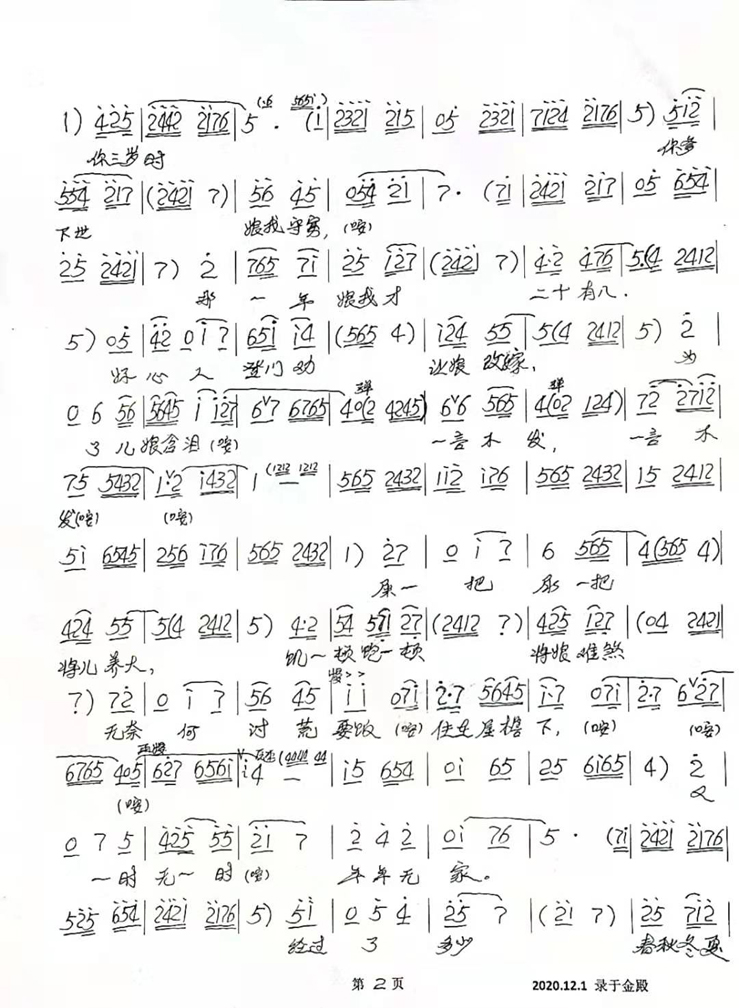 1) 425 | 2442 2176 | 5 · (i | 2321 215 | 05 2321 | 7124 2176 | 5) 512 |
你三岁时 你爹
554 217 | (2421 7) | 56 45 | 054 21 | 7 · (71 | 2421 217 | 05 654 |
下世 娘我守寡, (咹)
25 2421 | 7) 2 | 765 71 | 25 127 | (2421 7) | 4·2 476 | 5·(4 2412 |
那 一 年 娘我才 二十有八.
5) 05 | 42 017 | 651 14 | (565 4) | 124 55 | 5(4 2412 | 5) 2 |
好 心 人 登门劝 让娘 改嫁, 为
0 6 56 | 5645 1 127 | 6ᵛ7 6765 | 40(2 4245) | 6ᵛ6 565 | 4(02 124) | 72 2712 |
了儿娘含泪(咹) 一言不 发, 一言 不
75 5432 | 1ᵛ2 1432 | 1 — | 565 2432 | 112 176 | 565 2432 | 15 2412 |
发(咹) (咹)
51 6545 | 256 176 | 565 2432 | 1) 27 | 0 1 7 | 6 565 | 4(565 4) |
屎一 把 尿 一把
424 55 | 5(4 2412 | 5) 4·2 | 54 571 27 | (2412 7) | 425 127 | (04 2421 |
将儿 养大, 饥一顿饱一顿 将娘难煞
7) 72 | 0 1 7 | 56 45 | 1 1 071 | 2·7 5645 | 1·7 071 | 2·7 6ᵛ27 |
无奈 何 讨 荒 要饭 (咹) 住在屋檐 下, (咹) (咹)
6765 405 | 627 6561 | 4 — | 15 654 | 01 65 | 25 6165 | 4) 2 |
(咹)
0 7 5 | 425 55 | 21 7 | 2 4 2 | 01 76 | 5 · (71 | 2421 2176 |
一时 无一 时(咹) 年年无 家。
525 654 | 2421 2176 | 5) 51 | 0 5 4 | 25 7 | (21 7) | 25 712 |
经过 了 多少 春秋冬夏
第 2 页
2020.12.1 录于金殿